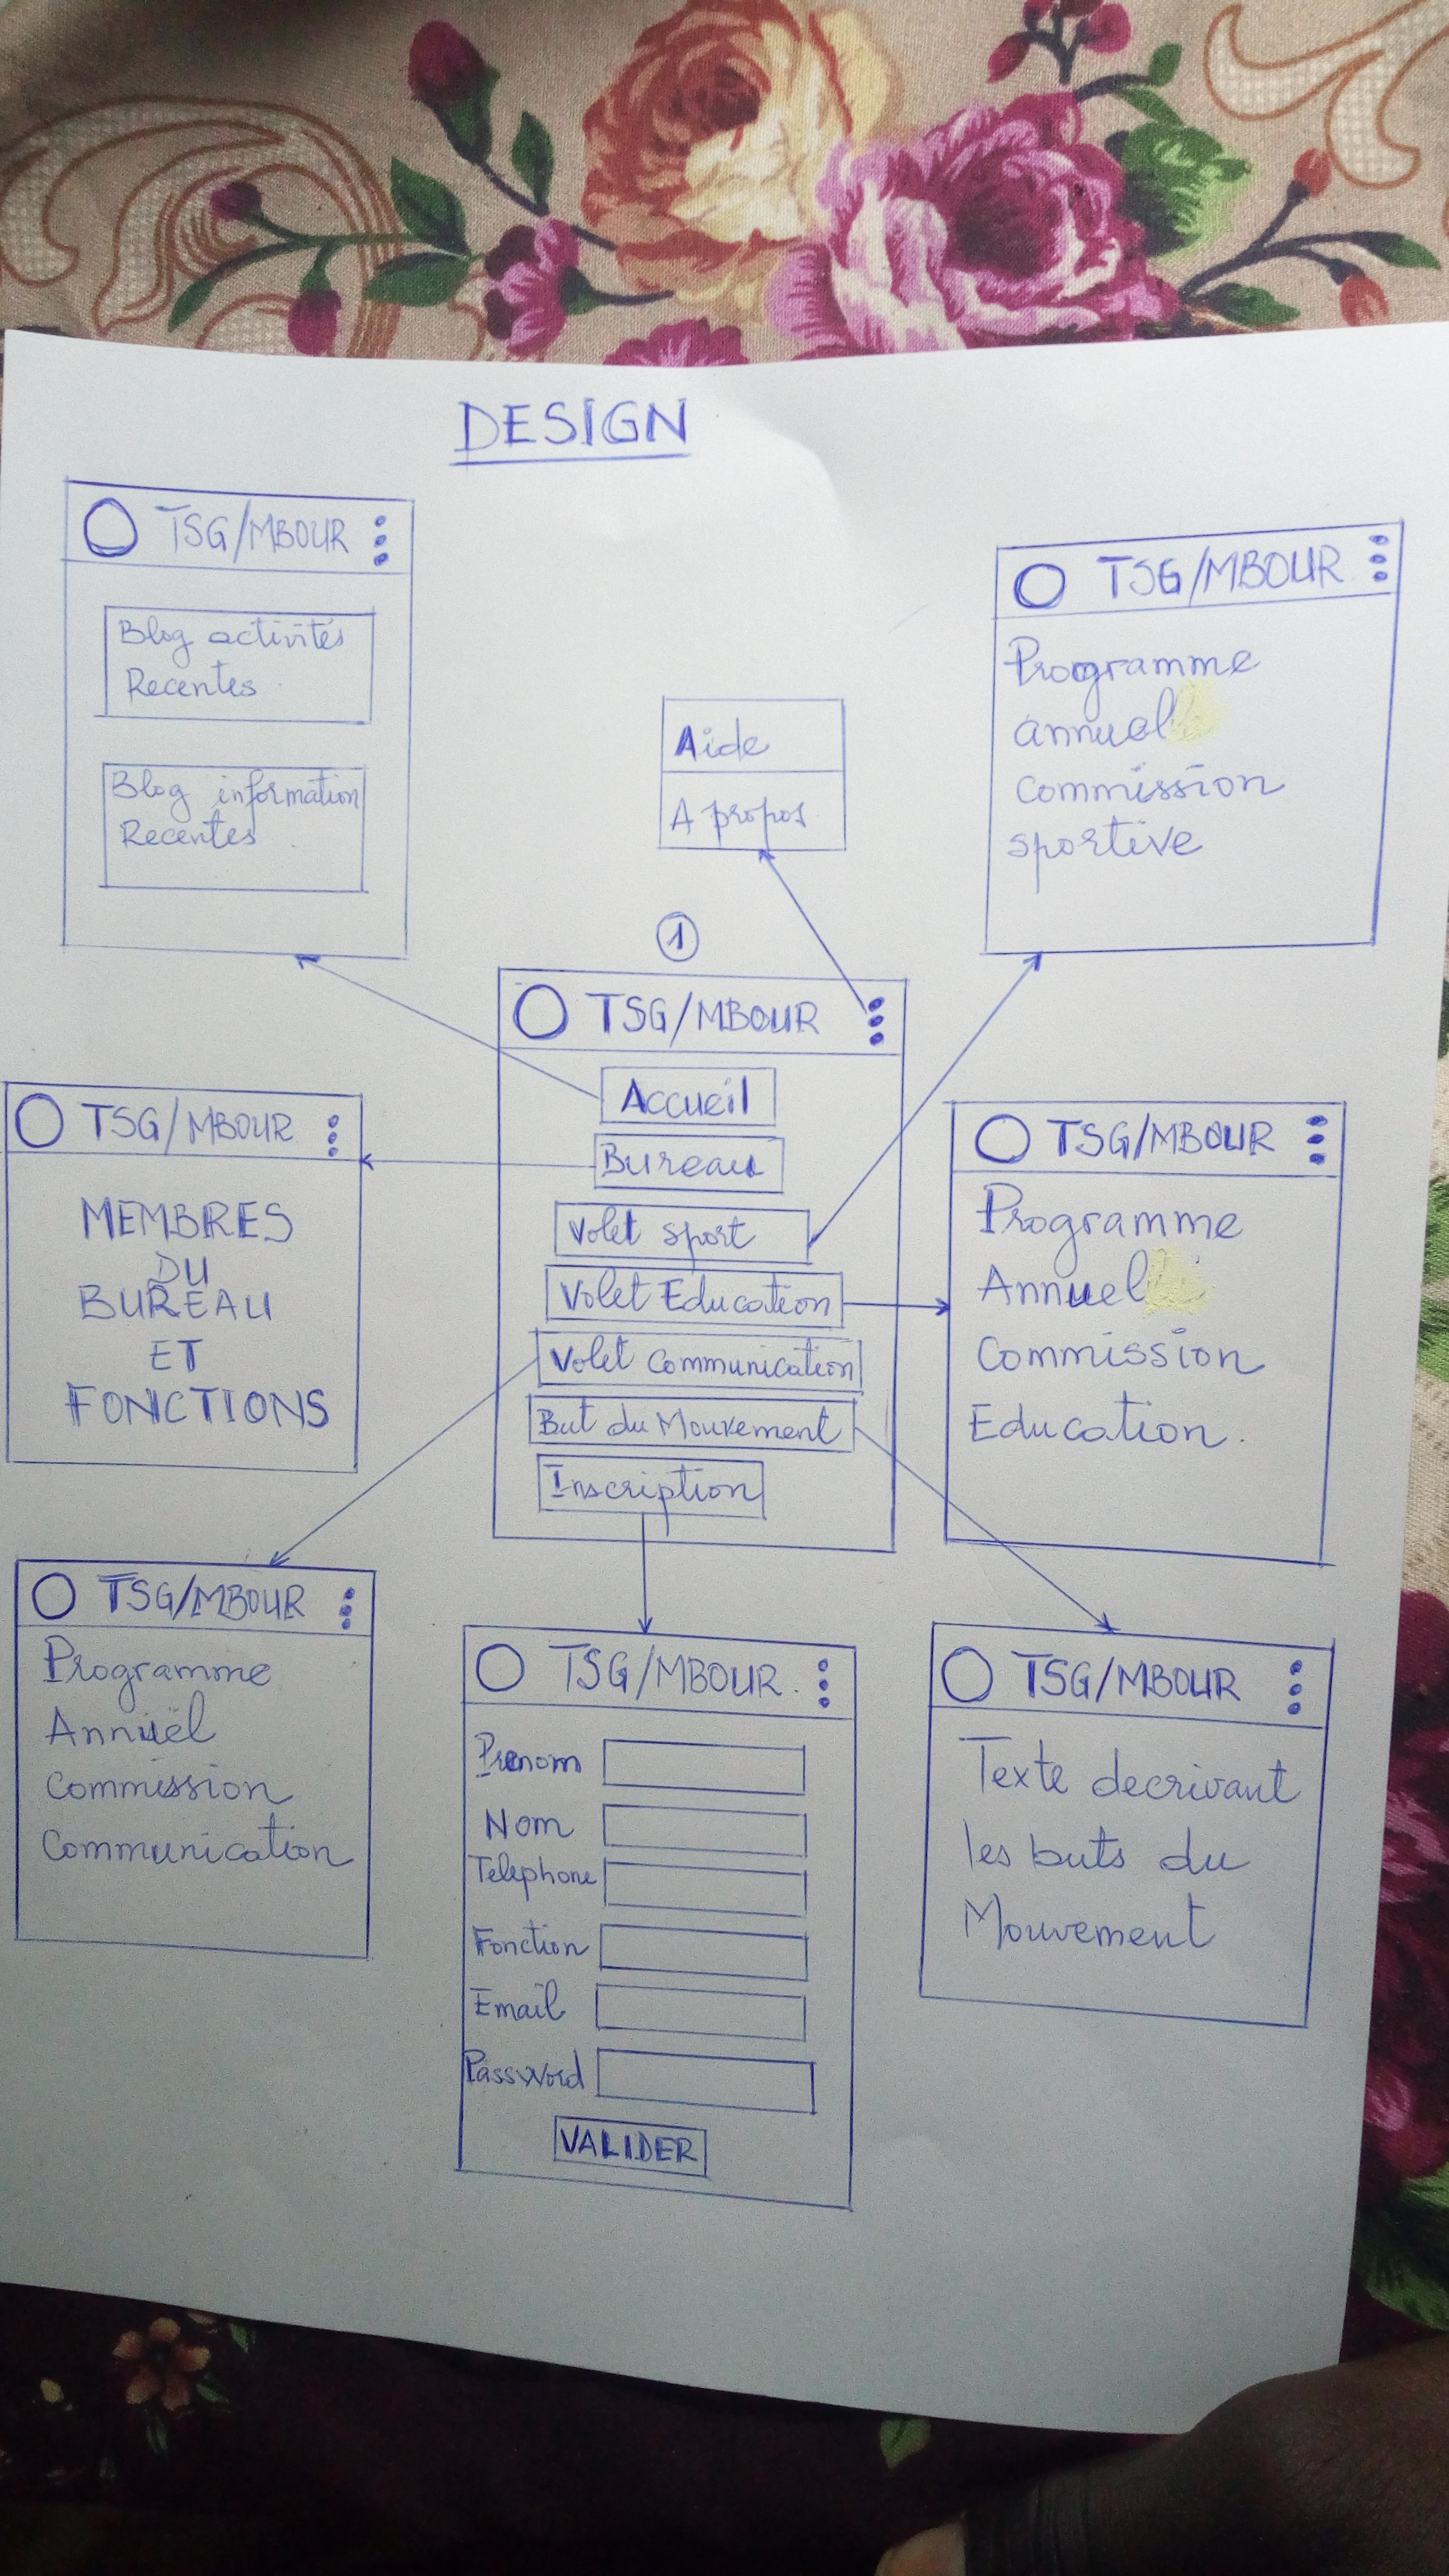 DESIGN
TSG/MBOUR
Blog activités
Recentes
Blog information
Recentes
Aide
A propos
TSG/MBOUR
Programme
annuel
commission
sportive
1
TSG/MBOUR
Accueil
Bureau
Volet sport
Volet Education
Volet Communication
But du Mouvement
Inscription
TSG/MBOUR
MEMBRES
DU
BUREAU
ET
FONCTIONS
TSG/MBOUR
Programme
Annuel
Commission
Education.
TSG/MBOUR
Programme
Annuel
Commission
Communication
TSG/MBOUR.
Prenom
Nom
Telephone
Fonction
Email
PassWord
VALIDER
TSG/MBOUR
Texte decrivant
les buts du
Mouvement